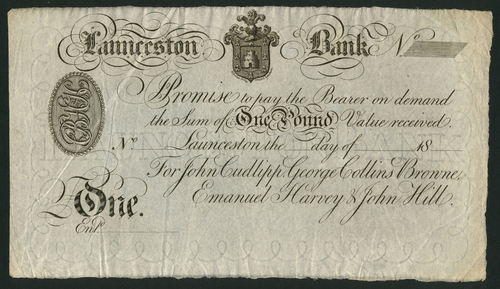 Launceston Bank No
Promise to pay the Bearer on demand
the Sum of One Pound Value received.
No Launceston the day of 18
For John Cudlipp, George Collins Browne,
£One. Emanuel Harvey & John Hill.
Entd.